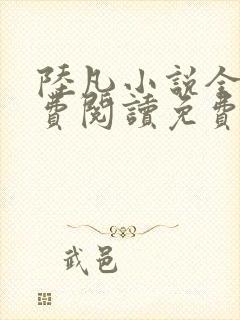 陸凡小說全
費閱讀免費
武邑